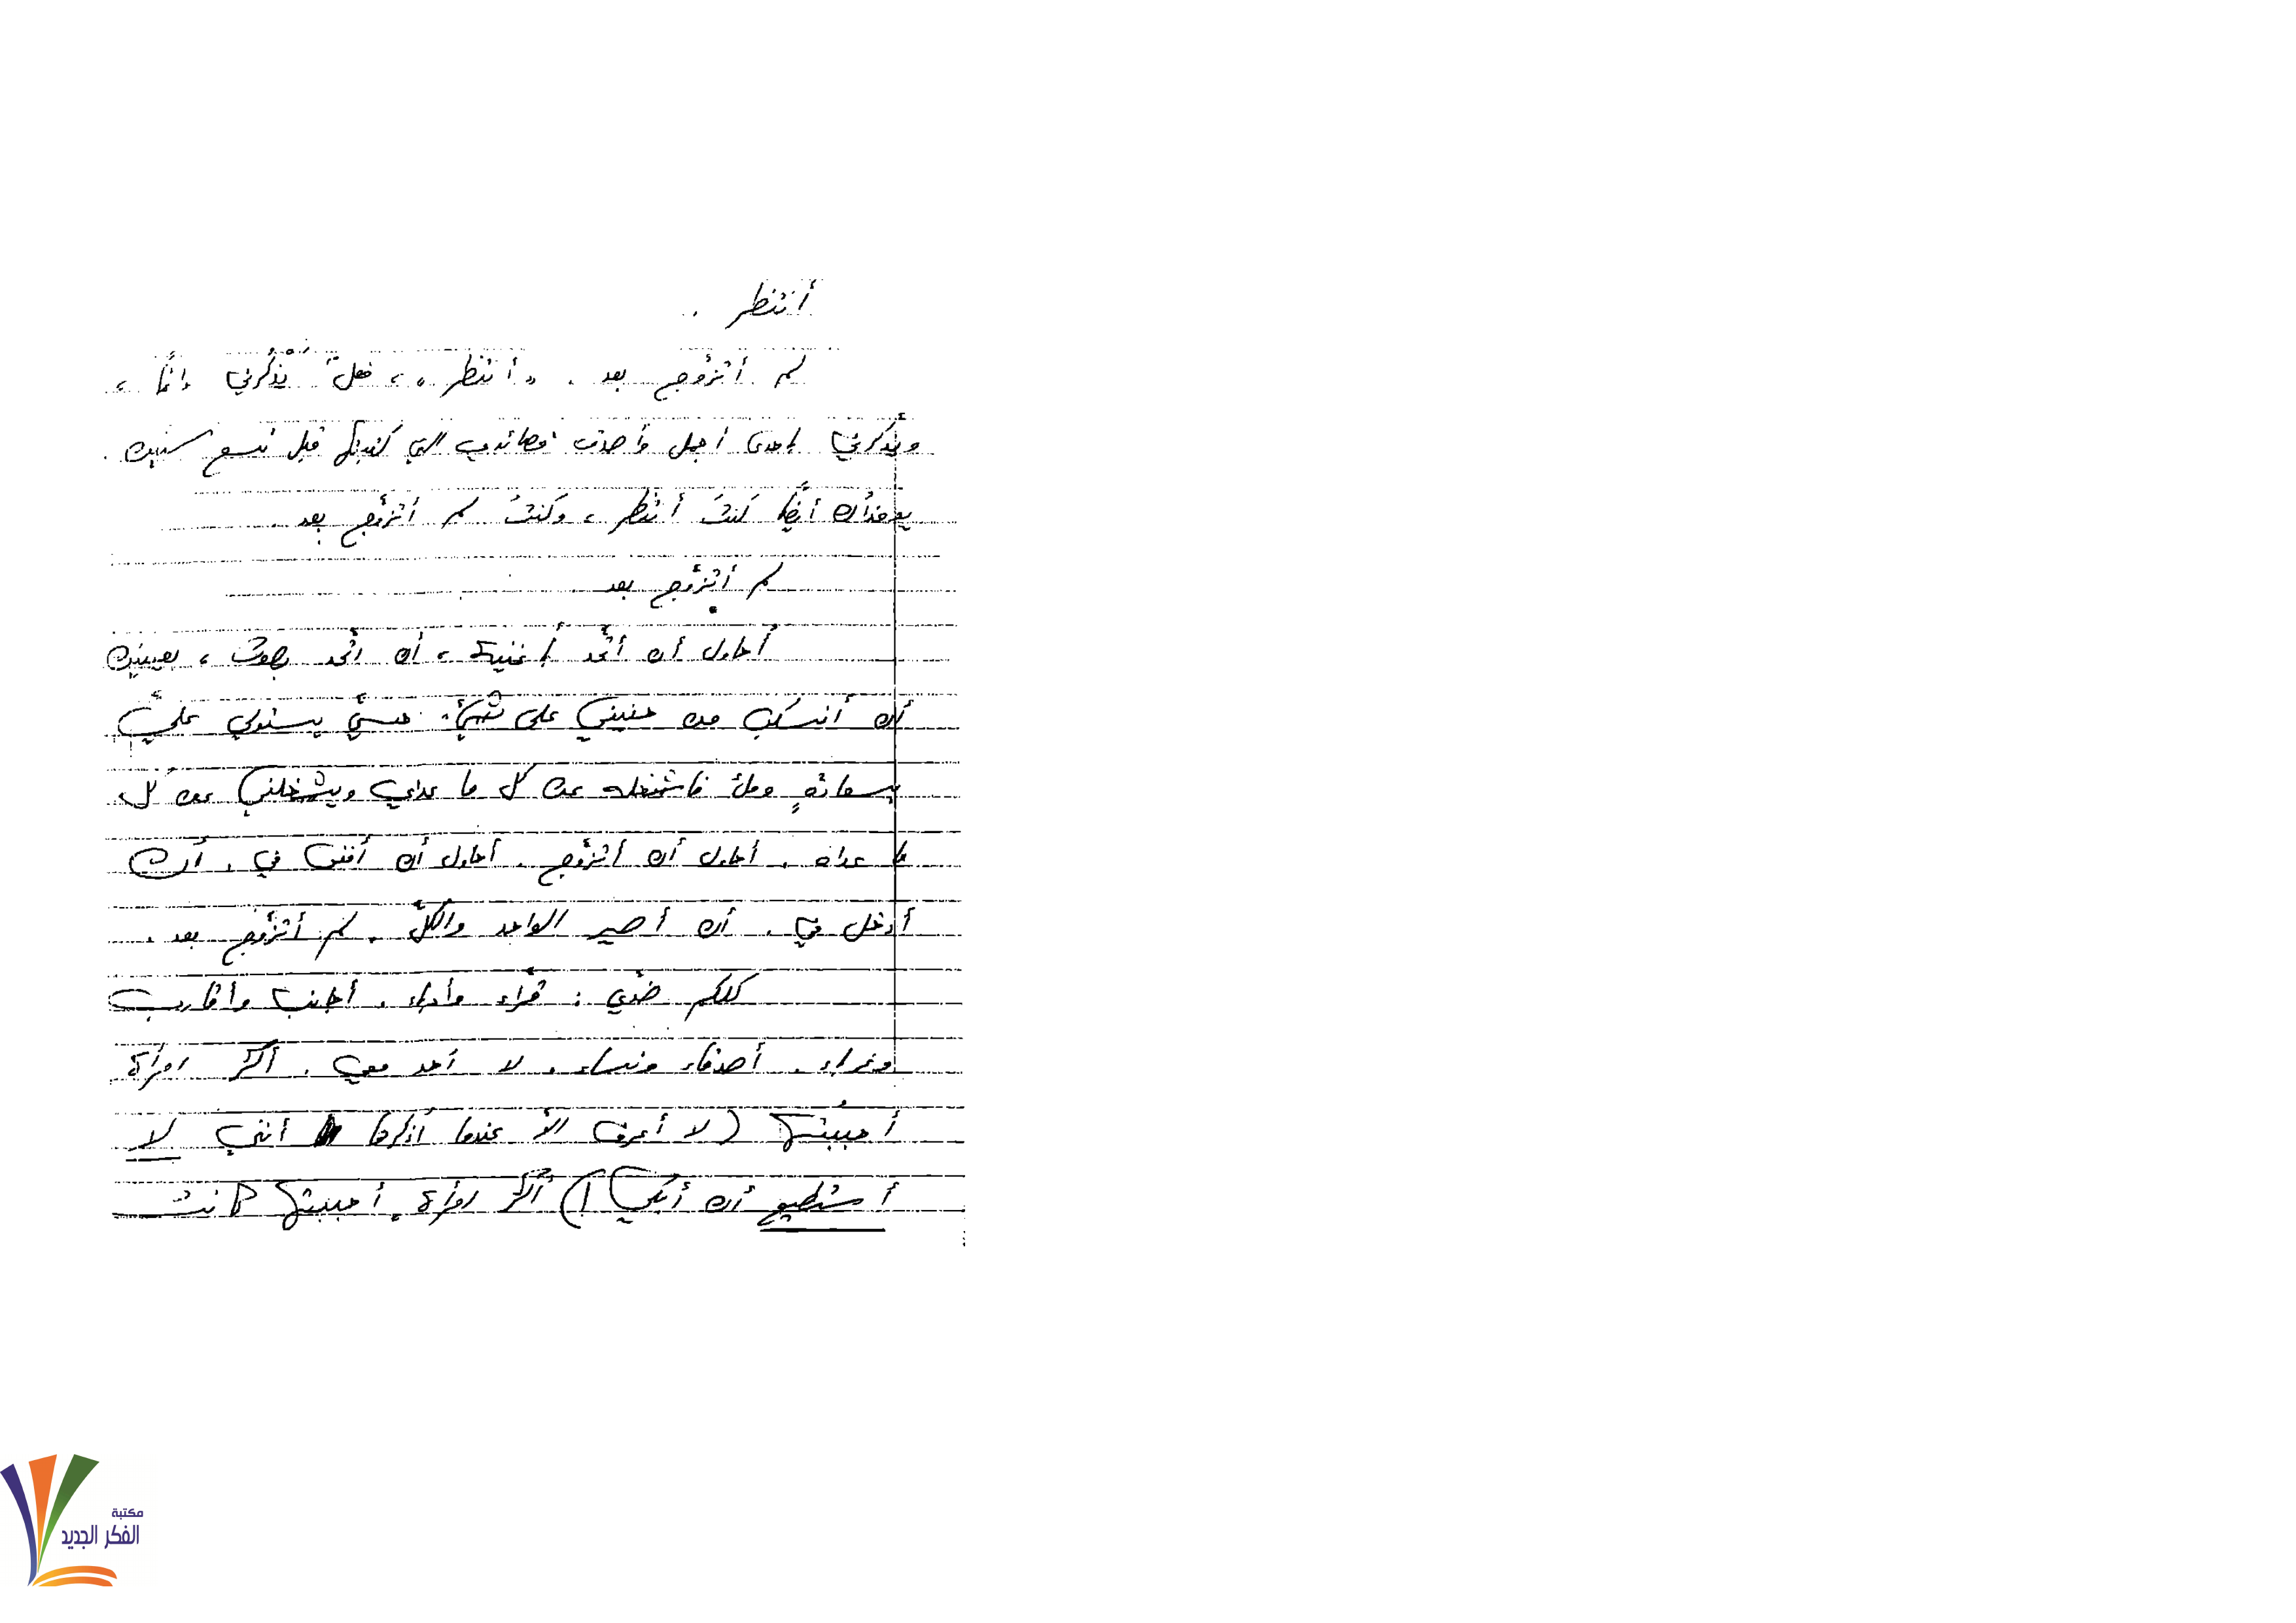 أنتظر .
لم أتزوّج بعد . «أنتظر» ، فعلٌ يُذَكِّرني دائمًا ،
ويُذكّرني بإحدى أجمل وأصدق قصائدي التي كتبتها قبل تسع سنين .
يومذاك أيضًا كنتُ أنتظر ، وكنتُ لم أتزوّج بعد .
لم أتزوّج بعد
أحاول أن أتّحد بأغنية ، أن أتّحد بصوت ، بعينين
أن أنسكب من حنيني على شيءٍ حسيّ يستولي عليّ
فأشتغل به عن كل ما عداي ويشغلني عن كل
ما عداه . أحاول أن أتزوّج . أحاول أن أفنى في . أن
أدخل في . أن أصير الواحد والكلّ . لم أتزوّج بعد .
كلكم ضدّي : قرّاء وأدباء . أجانب وأقارب
وغرباء . أصدقاء ونساء . لا أحد معي . أكثر امرأة
أحببتُها (لا أعرف إلاّ عندما أذكرها أنني لا
أستطيع أن أبكي !) أكثر امرأة أحببتها كانت
مكتبة
الفكر الجديد